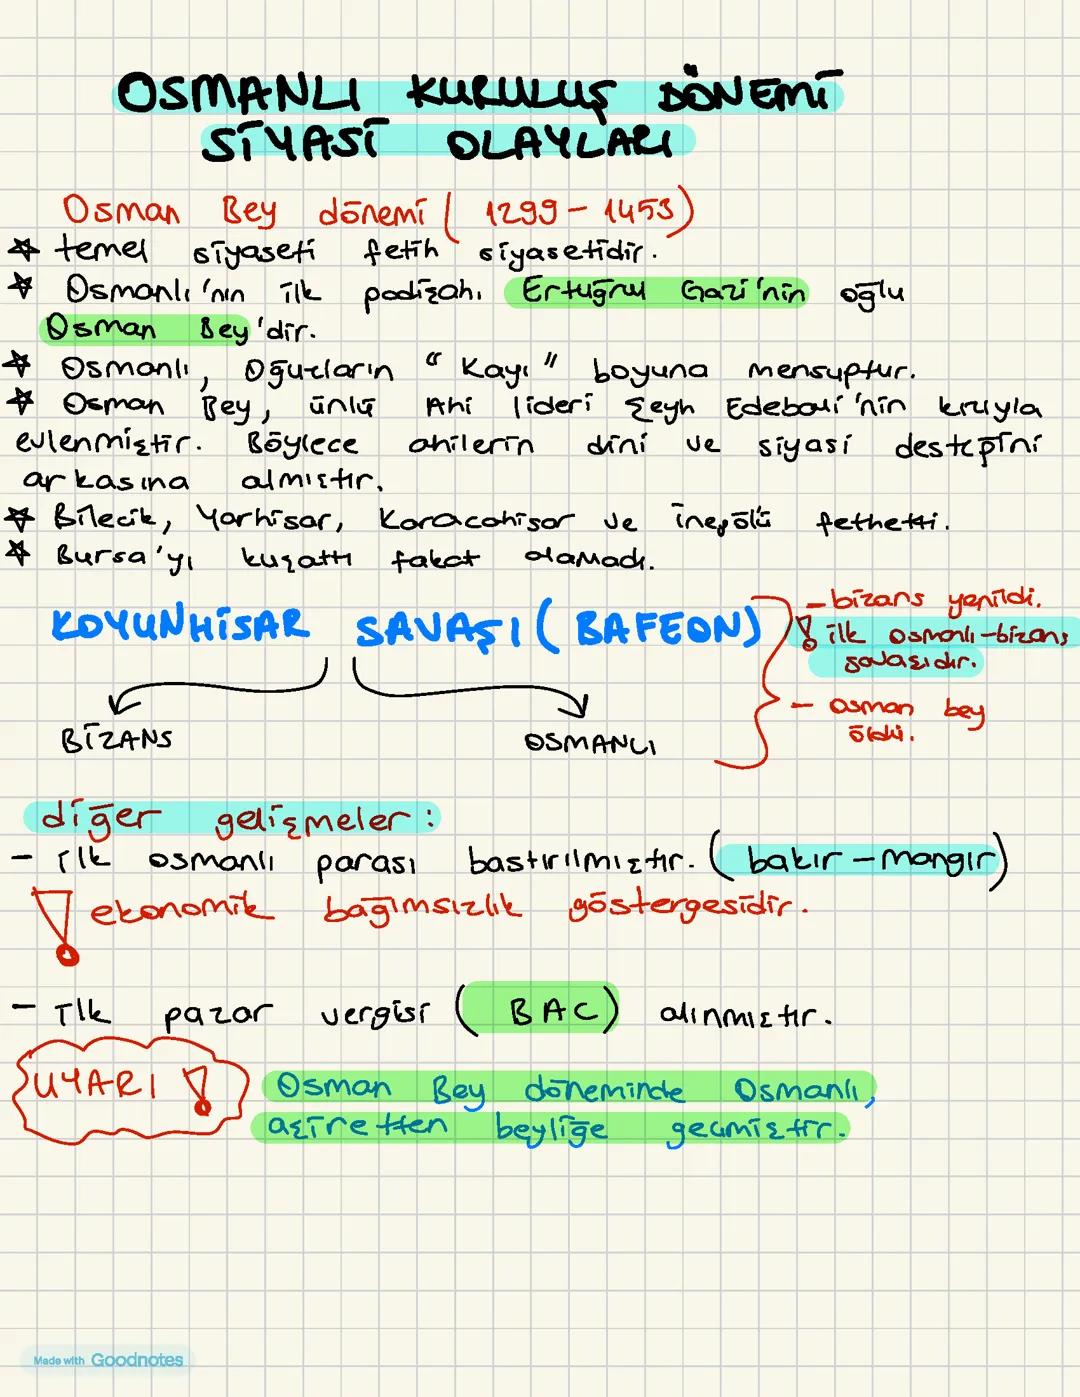 OSMANLI KURULUŞ DÖNEMİ
SİYASİ OLAYLARI
Osman Bey dönemi ( 1299 - 1453)
☆ temel siyaseti fetih siyasetidir.
☆ Osmanlı'nın ilk padişahı Ertuğrul Gazi'nin oğlu
Osman Bey'dir.
☆ Osmanlı, Oğuzların "Kayı" boyuna mensuptur.
☆ Osman Bey, ünlü Ahi lideri Şeyh Edebali'nin kızıyla
evlenmiştir. Böylece ahilerin dini ve siyasi desteğini
arkasına almıştır.
☆ Bilecik, Yarhisar, Karacahisar ve İnegölü fethetti.
☆ Bursa'yı kuşattı fakat alamadı.
KOYUNHİSAR SAVAŞI ( BAFEON)
- bizans yenildi.
! ilk osmanlı-bizans
savaşıdır.
- osman bey
öldü.
BİZANS OSMANLI
diğer gelişmeler :
- ilk osmanlı parası bastırılmıştır. ( bakır - mangır)
! ekonomik bağımsızlık göstergesidir.
- ilk pazar vergisi ( BAC) alınmıştır.
UYARI ! Osman Bey döneminde Osmanlı,
aşiretten beyliğe geçmiştir.
Made with Goodnotes